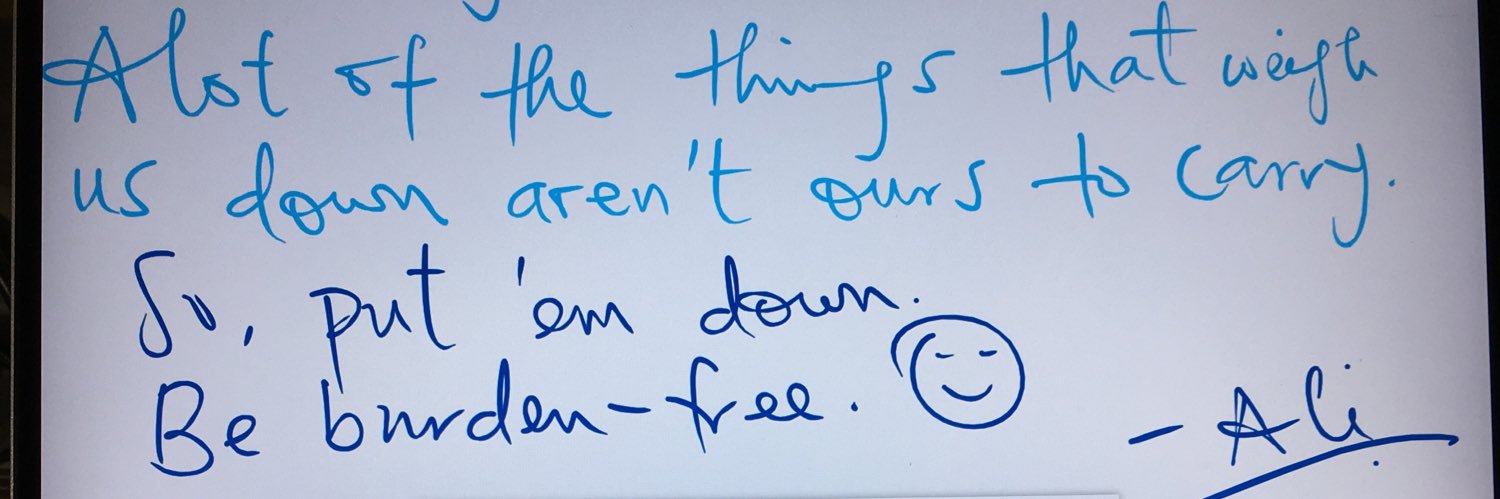 A lot of the things that weigh
us down aren't ours to carry.
So, put 'em down.
Be burden-free.
- Ali